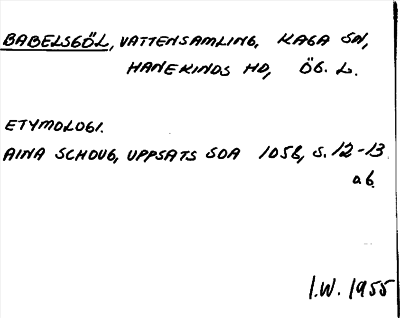 BABELSGÖL, VATTENSAMLING, KAGA SN,
HANEKINDS HD, ÖG. L.
ETYMOLOGI.
AINA SCHOUG, UPPSATS SOA 1056, S. 12-13
ab.
I.W. 1955